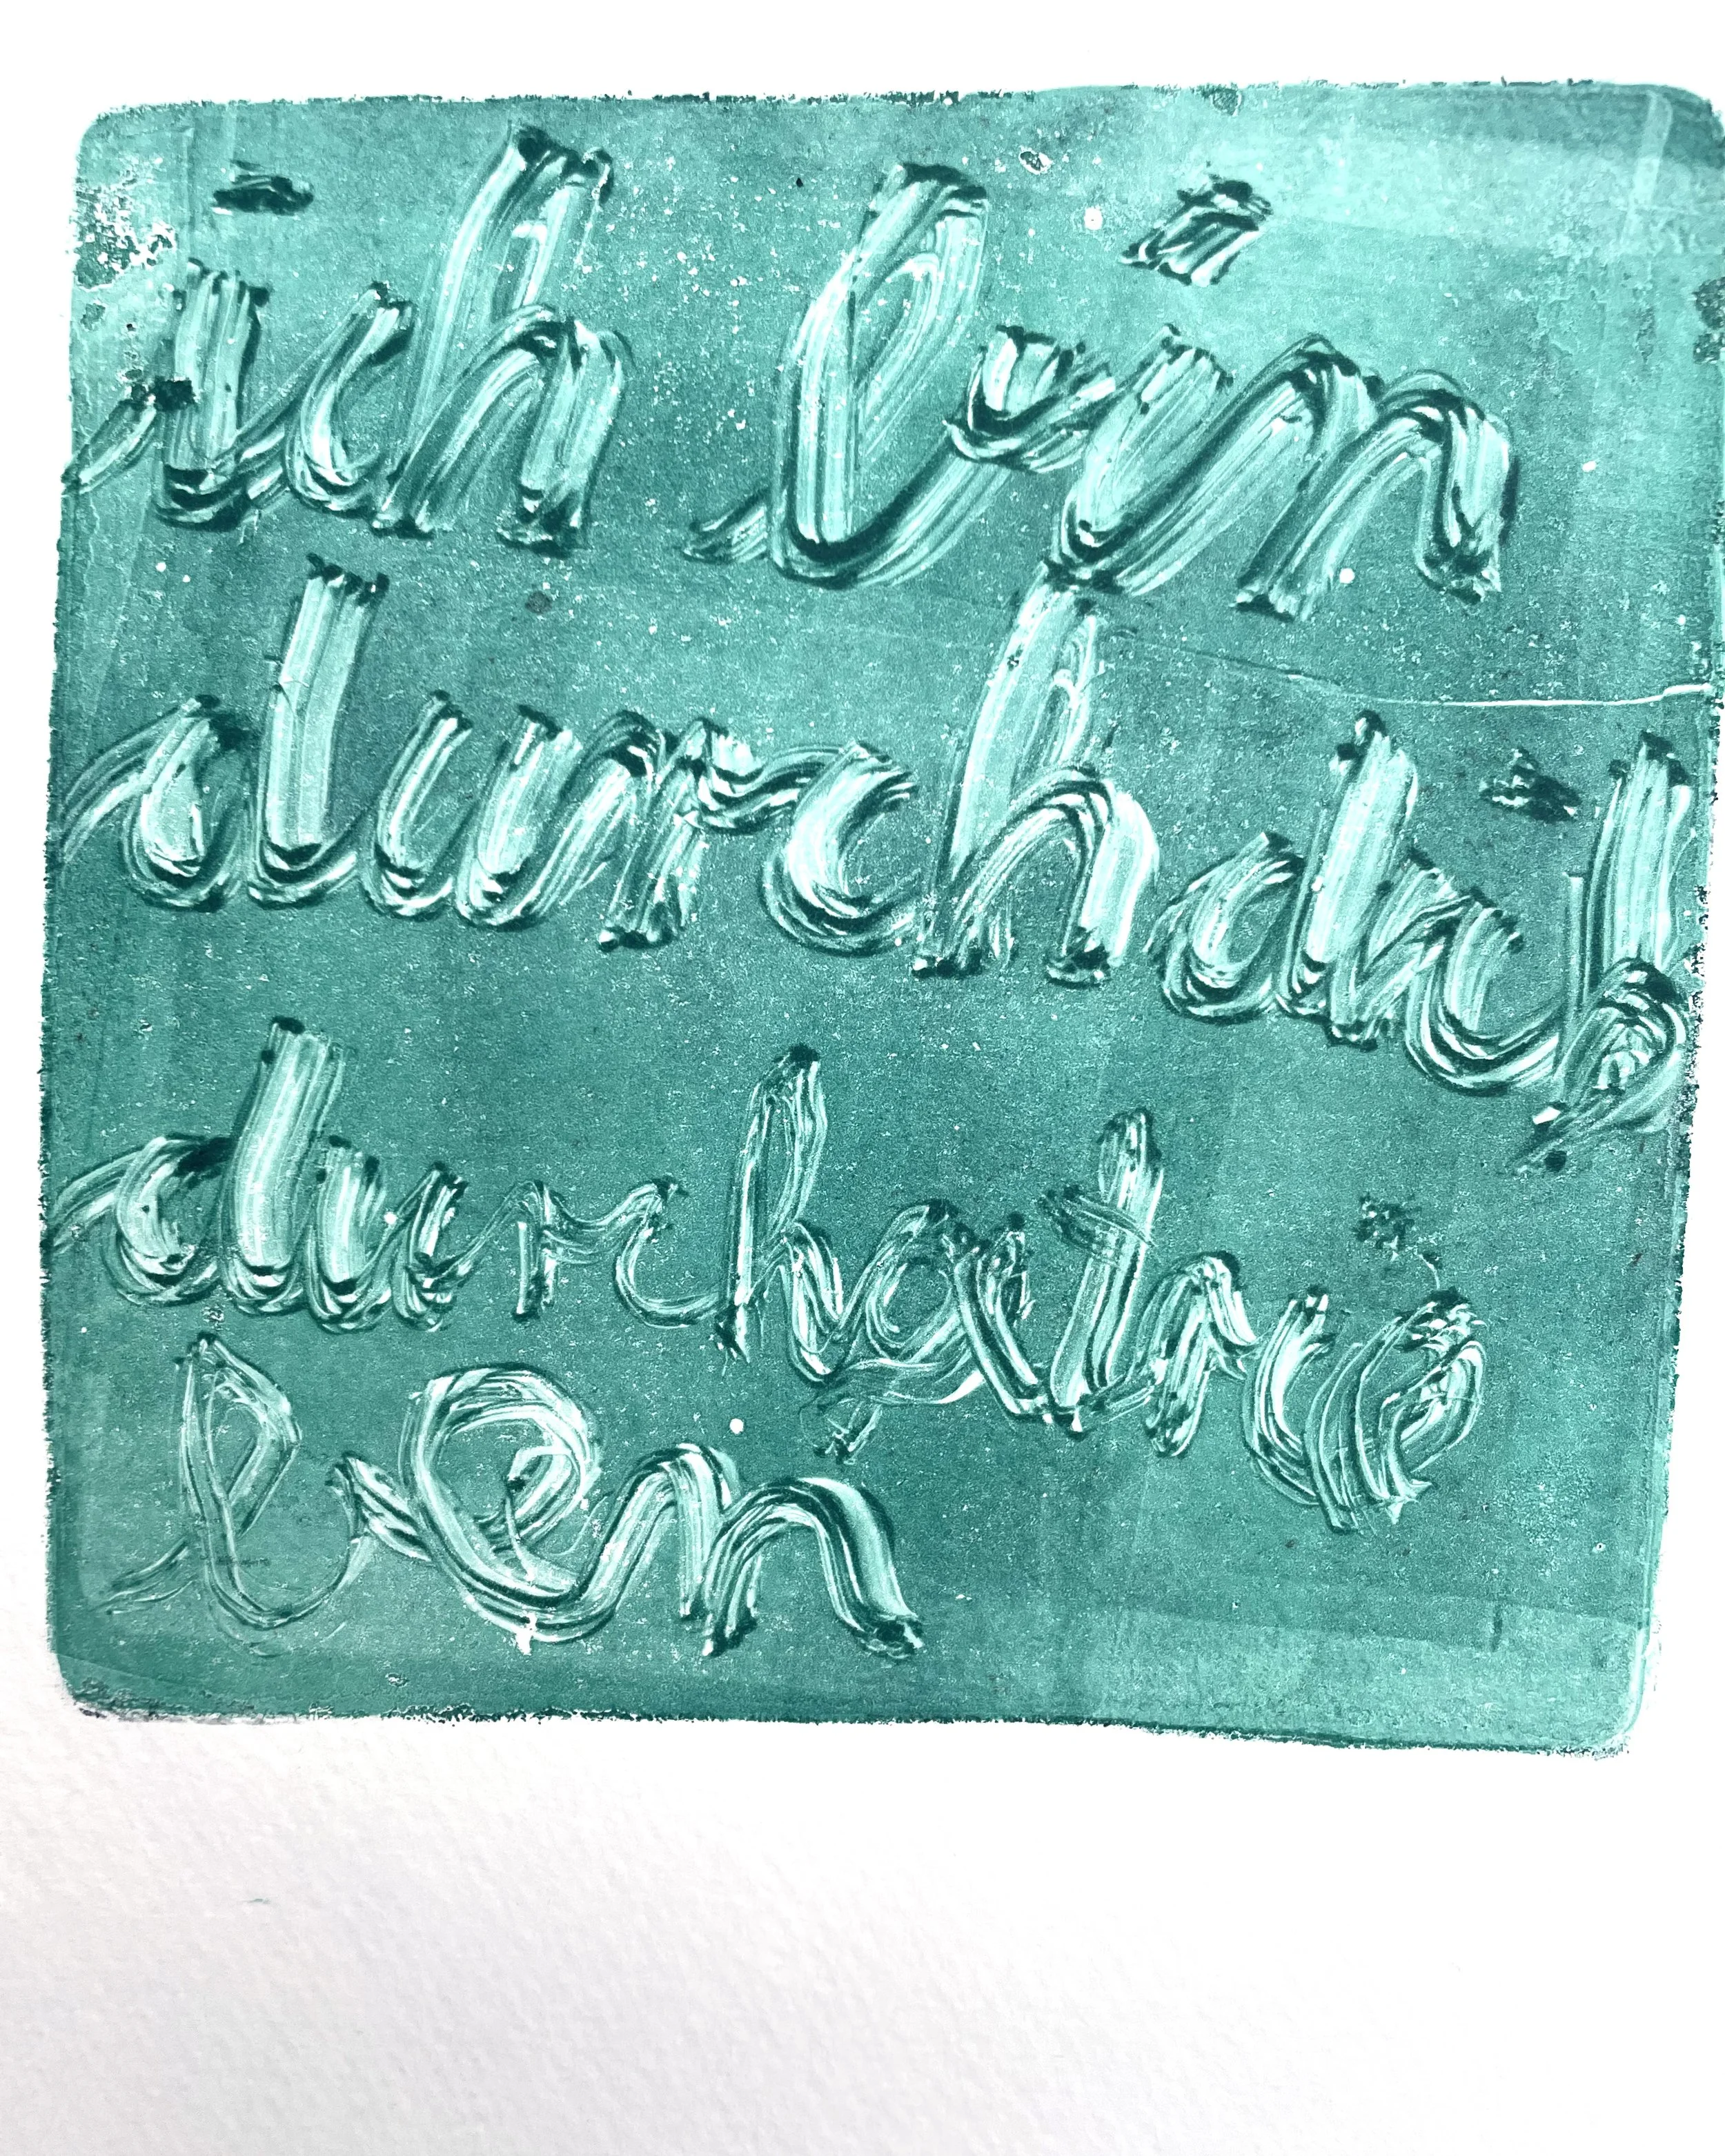 ich bin
durch dich
durchgetrie
ben